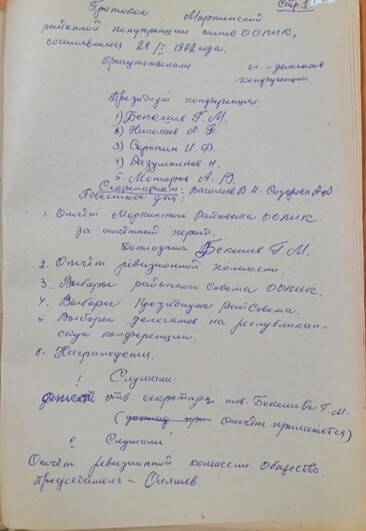 Стр 1
Протокол Моркинской
районной конференции членов ООПИК,
состоявшейся 28/I 1977 года.
Присутствовали чл. - делегатов
конференции
Президиум конференции:
1) Бекешев Г. М.
2) Николаев А. В.
3) Сорокин И. Ф.
4) Разумменов Н.
5. Моторов А. В.
Секретариат: Васильев В. И. Сидорова
Повестка дня:
1. Отчёт Моркинского Райсовета ООПИК
за отчётный период.
Докладчик Бекешев Г. М.
2. Отчёт ревизионной комиссии.
3. Выборы районного Совета ООПИК.
4. Выборы Президиума РайСовета.
5. Выборы делегатов на республикан-
скую конференцию.
6. Награждения.
1 Слушали:
отв секретаря тов. Бекешева Г. М.
(отчёт прилагается)
2 Слушали
Отчёт ревизионной комиссии общество.
Председатель -